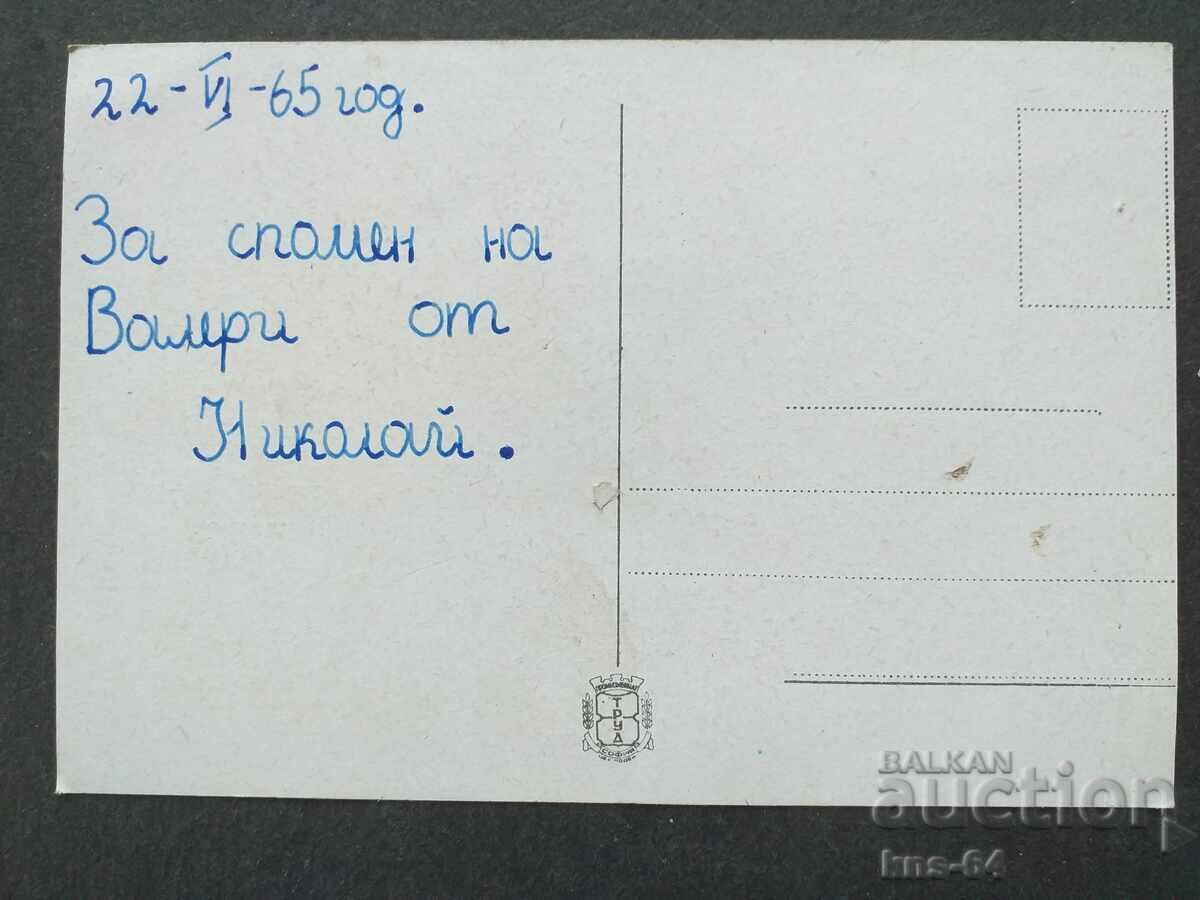 22-VI-65 год.
За спомен на
Валери от
Николай.
ТРУД
СОФИЯ
BALKAN
auction
kns-64